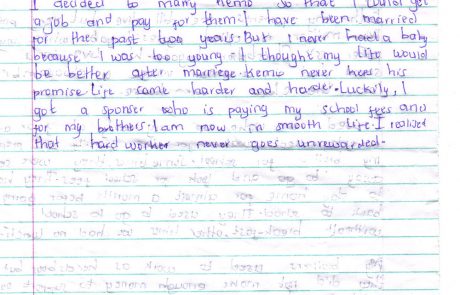 I decided to marry Kemo so that I would get
a job and pay for them. I have been married
for the past two years. But I never had a baby
because I was too young. I thought my life would
be better after marriege. Kemo never his
promise. Life came harder and harder. Luckily, I
got a sponser who is paying my school fees and
for my brothers. I am now in smooth life. I realised
that hard worker never goes unrewarded.